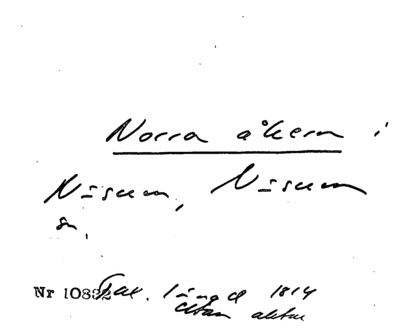 Norra åkern i
Näsum, Näsum
sn.
Nr 10832 Tax. längd 1814
utan aktnr